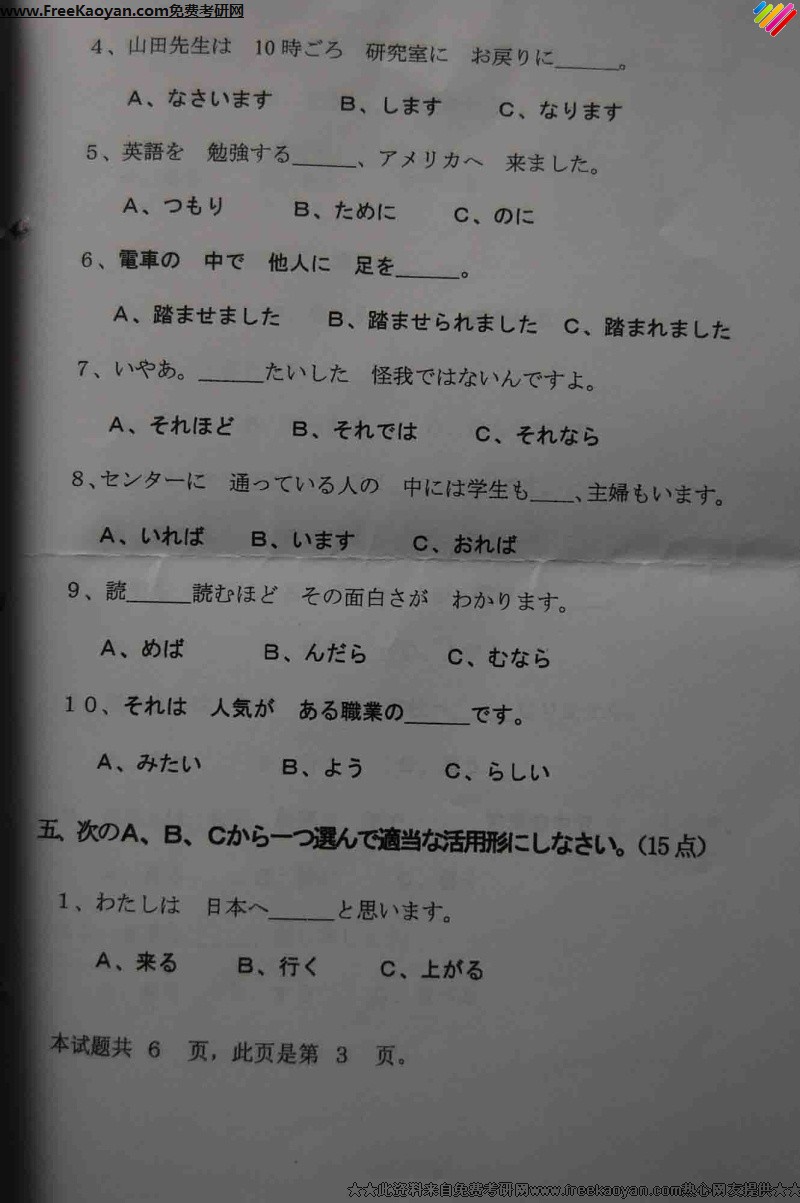 www.FreeKaoyan.com免费考研网
4、山田先生は 10時ごろ 研究室に お戻りに______。
A、なさいます B、します C、なります
5、英語を 勉強する______、アメリカへ 来ました。
A、つもり B、ために C、のに
6、電車の 中で 他人に 足を______。
A、踏ませました B、踏ませられました C、踏まれました
7、いやあ。______たいした 怪我ではないんですよ。
A、それほど B、それでは C、それなら
8、センターに 通っている人の 中には学生も____、主婦もいます。
A、いれば B、います C、おれば
9、読______読むほど その面白さが わかります。
A、めば B、んだら C、むなら
10、それは 人気が ある職業の______です。
A、みたい B、よう C、らしい
五、次のA、B、Cから一つ選んで適当な活用形にしなさい。(15点)
1、わたしは 日本へ______と思います。
A、来る B、行く C、上がる
本试题共 6 页，此页是第 3 页。
★★此资料来自免费考研网www.freekaoyan.com热心网友提供★★